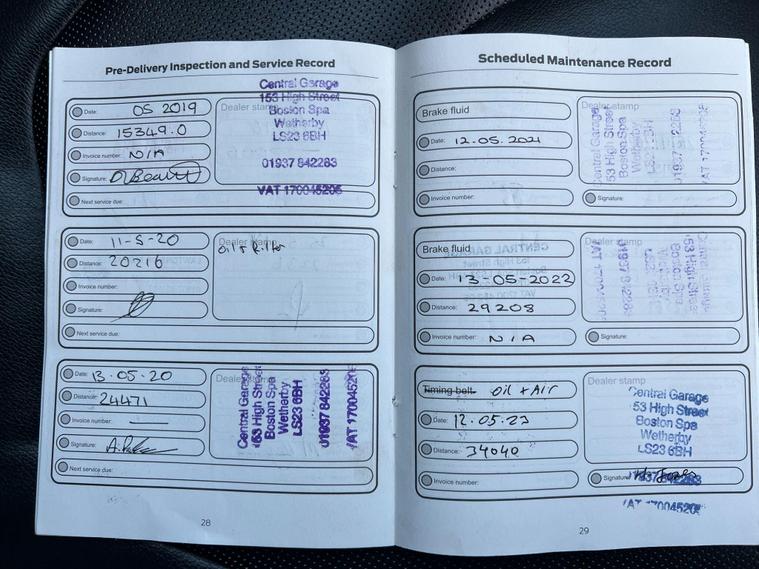 Pre-Delivery Inspection and Service Record
Date: 05 2019
Distance: 15349.0
Invoice number: N/A
Signature:
Next service due:
Dealer stamp
Central Garage
153 High Street
Boston Spa
Wetherby
LS23 6BH
01937 842283
VAT 170045205
Date: 11-5-20
Distance: 20216
Invoice number:
Signature:
Next service due:
Dealer stamp
Oil & Filter
Date: 13.05.20
Distance: 24471
Invoice number: —
Signature:
Next service due:
Dealer stamp
Central Garage
153 High Street
Boston Spa
Wetherby
LS23 6BH
01937 842283
VAT 170045205
28
Scheduled Maintenance Record
Brake fluid
Date: 12.05.2021
Distance:
Invoice number:
Dealer stamp
Central Garage
53 High Street
Boston Spa
Wetherby
LS23 6BH
VAT 170045205
Signature:
Brake fluid
Date: 13-05-2022
Distance: 29208
Invoice number: N/A
Dealer stamp
Central Garage
53 High Street
Boston Spa
Signature:
Timing belt Oil + Air
Date: 12.05.23
Distance: 34040
Invoice number:
Dealer stamp
Central Garage
53 High Street
Boston Spa
Wetherby
LS23 6BH
Signature:
29